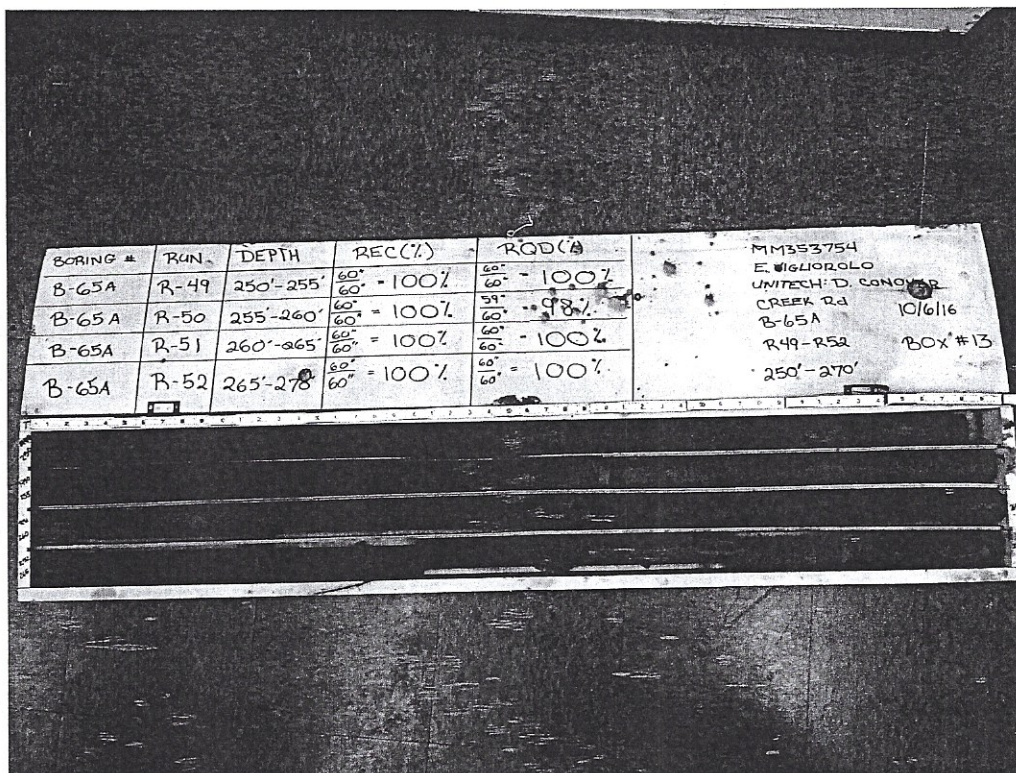 BORING # RUN DEPTH REC(%) RQD(%)
B-65A R-49 250'-255' 60"/60" = 100% 60"/60" = 100%
B-65A R-50 255'-260' 60"/60" = 100% 59"/60" = 98%
B-65A R-51 260'-265' 60"/60" = 100% 60"/60" = 100%
B-65A R-52 265'-270' 60"/60" = 100% 60"/60" = 100%
MM353754
E. VIGLIOROLO
UNITECH: D. CONOVER
CREEK Rd 10/6/16
B-65A
R49-R52 BOX #13
250'-270'